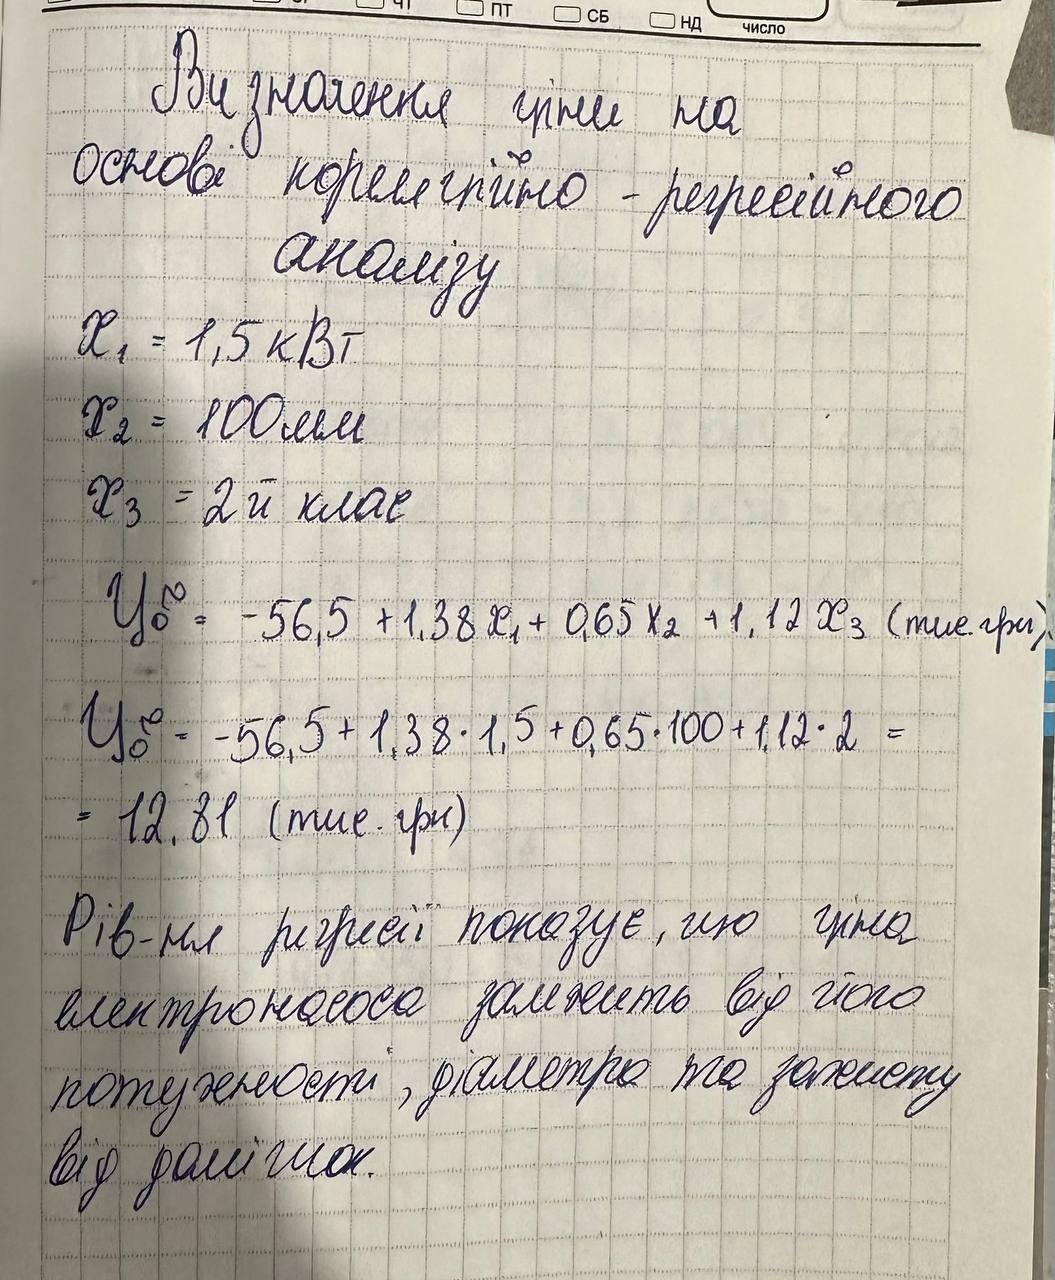 ПТ СБ НД ЧИСЛО
Визначення ціни на
основі кореляційно - регресійного
аналізу
X₁ = 1,5 кВт
X₂ = 100 мм
X₃ = 2й клас
= -56,5 + 1,38 X₁ + 0,65 X₂ + 1,12 X₃ (тис. грн).
= -56,5 + 1,38 · 1,5 + 0,65 · 100 + 1,12 · 2 =
= 12.81 (тис. грн)
Рів-ня регресії показує, що ціна
електронасоса залежить від його
потужності, діаметра та захисту
від домішок.